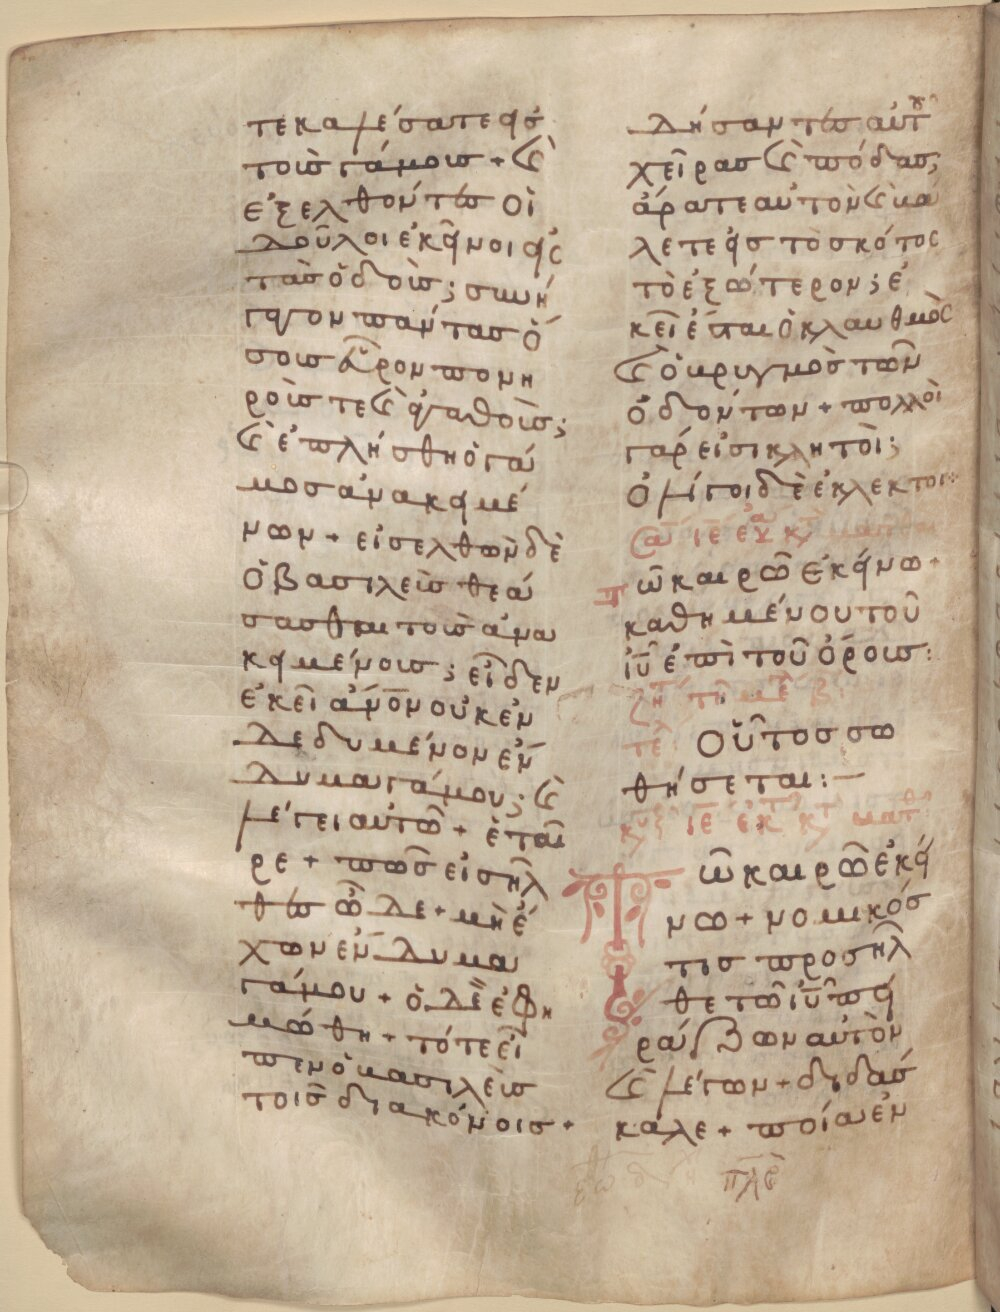 τε καλέσατε εἰς
τοὺς γάμους + καὶ
ἐξελθόντες οἱ
δοῦλοι ἐκεῖνοι εἰς
τὰς ὁδοὺς; συνή
γαγον πάντας ὅ
σους εὗρον πονη
ροὺς τε καὶ ἀγαθοὺς;
καὶ ἐπλήσθη ὁ γά
μος ἀνακειμέ
νων + εἰσελθὼν δὲ
ὁ βασιλεὺς θεά
σασθαι τοὺς ἀνα
κειμένους; εἶδεν
ἐκεῖ ἀνον οὐκ ἐν
δεδυμένον ἔν
δυμα γάμου; καὶ
λέγει αὐτῶ + ἑταῖ
ρε + πῶς εἰσῆλ
θες ὧδε + μὴ ἔ
χων ἔνδυμα
γάμου + ὁ δὲ ἐφι
μώθη + τότε εἶ
πεν ὁ βασιλεὺς
τοῖς διακόνοις +
δήσαντες αὐτοῦ
χεῖρας καὶ πόδας;
ἄρατε αὐτὸν καὶ βά
λετε εἰς τὸ σκότος
τὸ ἐξώτερον; ἐ
κεῖ ἔσται ὁ κλαυθμὸς
καὶ ὁ βρυγμὸς τῶν
ὀδόντων + πολλοὶ
γάρ εἰσι κλητοὶ;
ὀλίγοι δὲ ἐκλεκτοι:
σα ιε ευα κτ ματθ
Τῶ καιρῶ ἐκείνω +
καθημένου τοῦ
ιυ ἐπὶ τοῦ ὄρους:
ζη τη με β:
τε Οὗτος σω
θήσεται:—
κυ ιε ἐκ τ κτ ματθ
Τῶ καιρῶ ἐκεί
νω + νομικός
τις προσῆλ
θε τῶ ιυ πει
ράζων αὐτὸν
καὶ λέγων + διδάσ
καλε + ποία ἐν